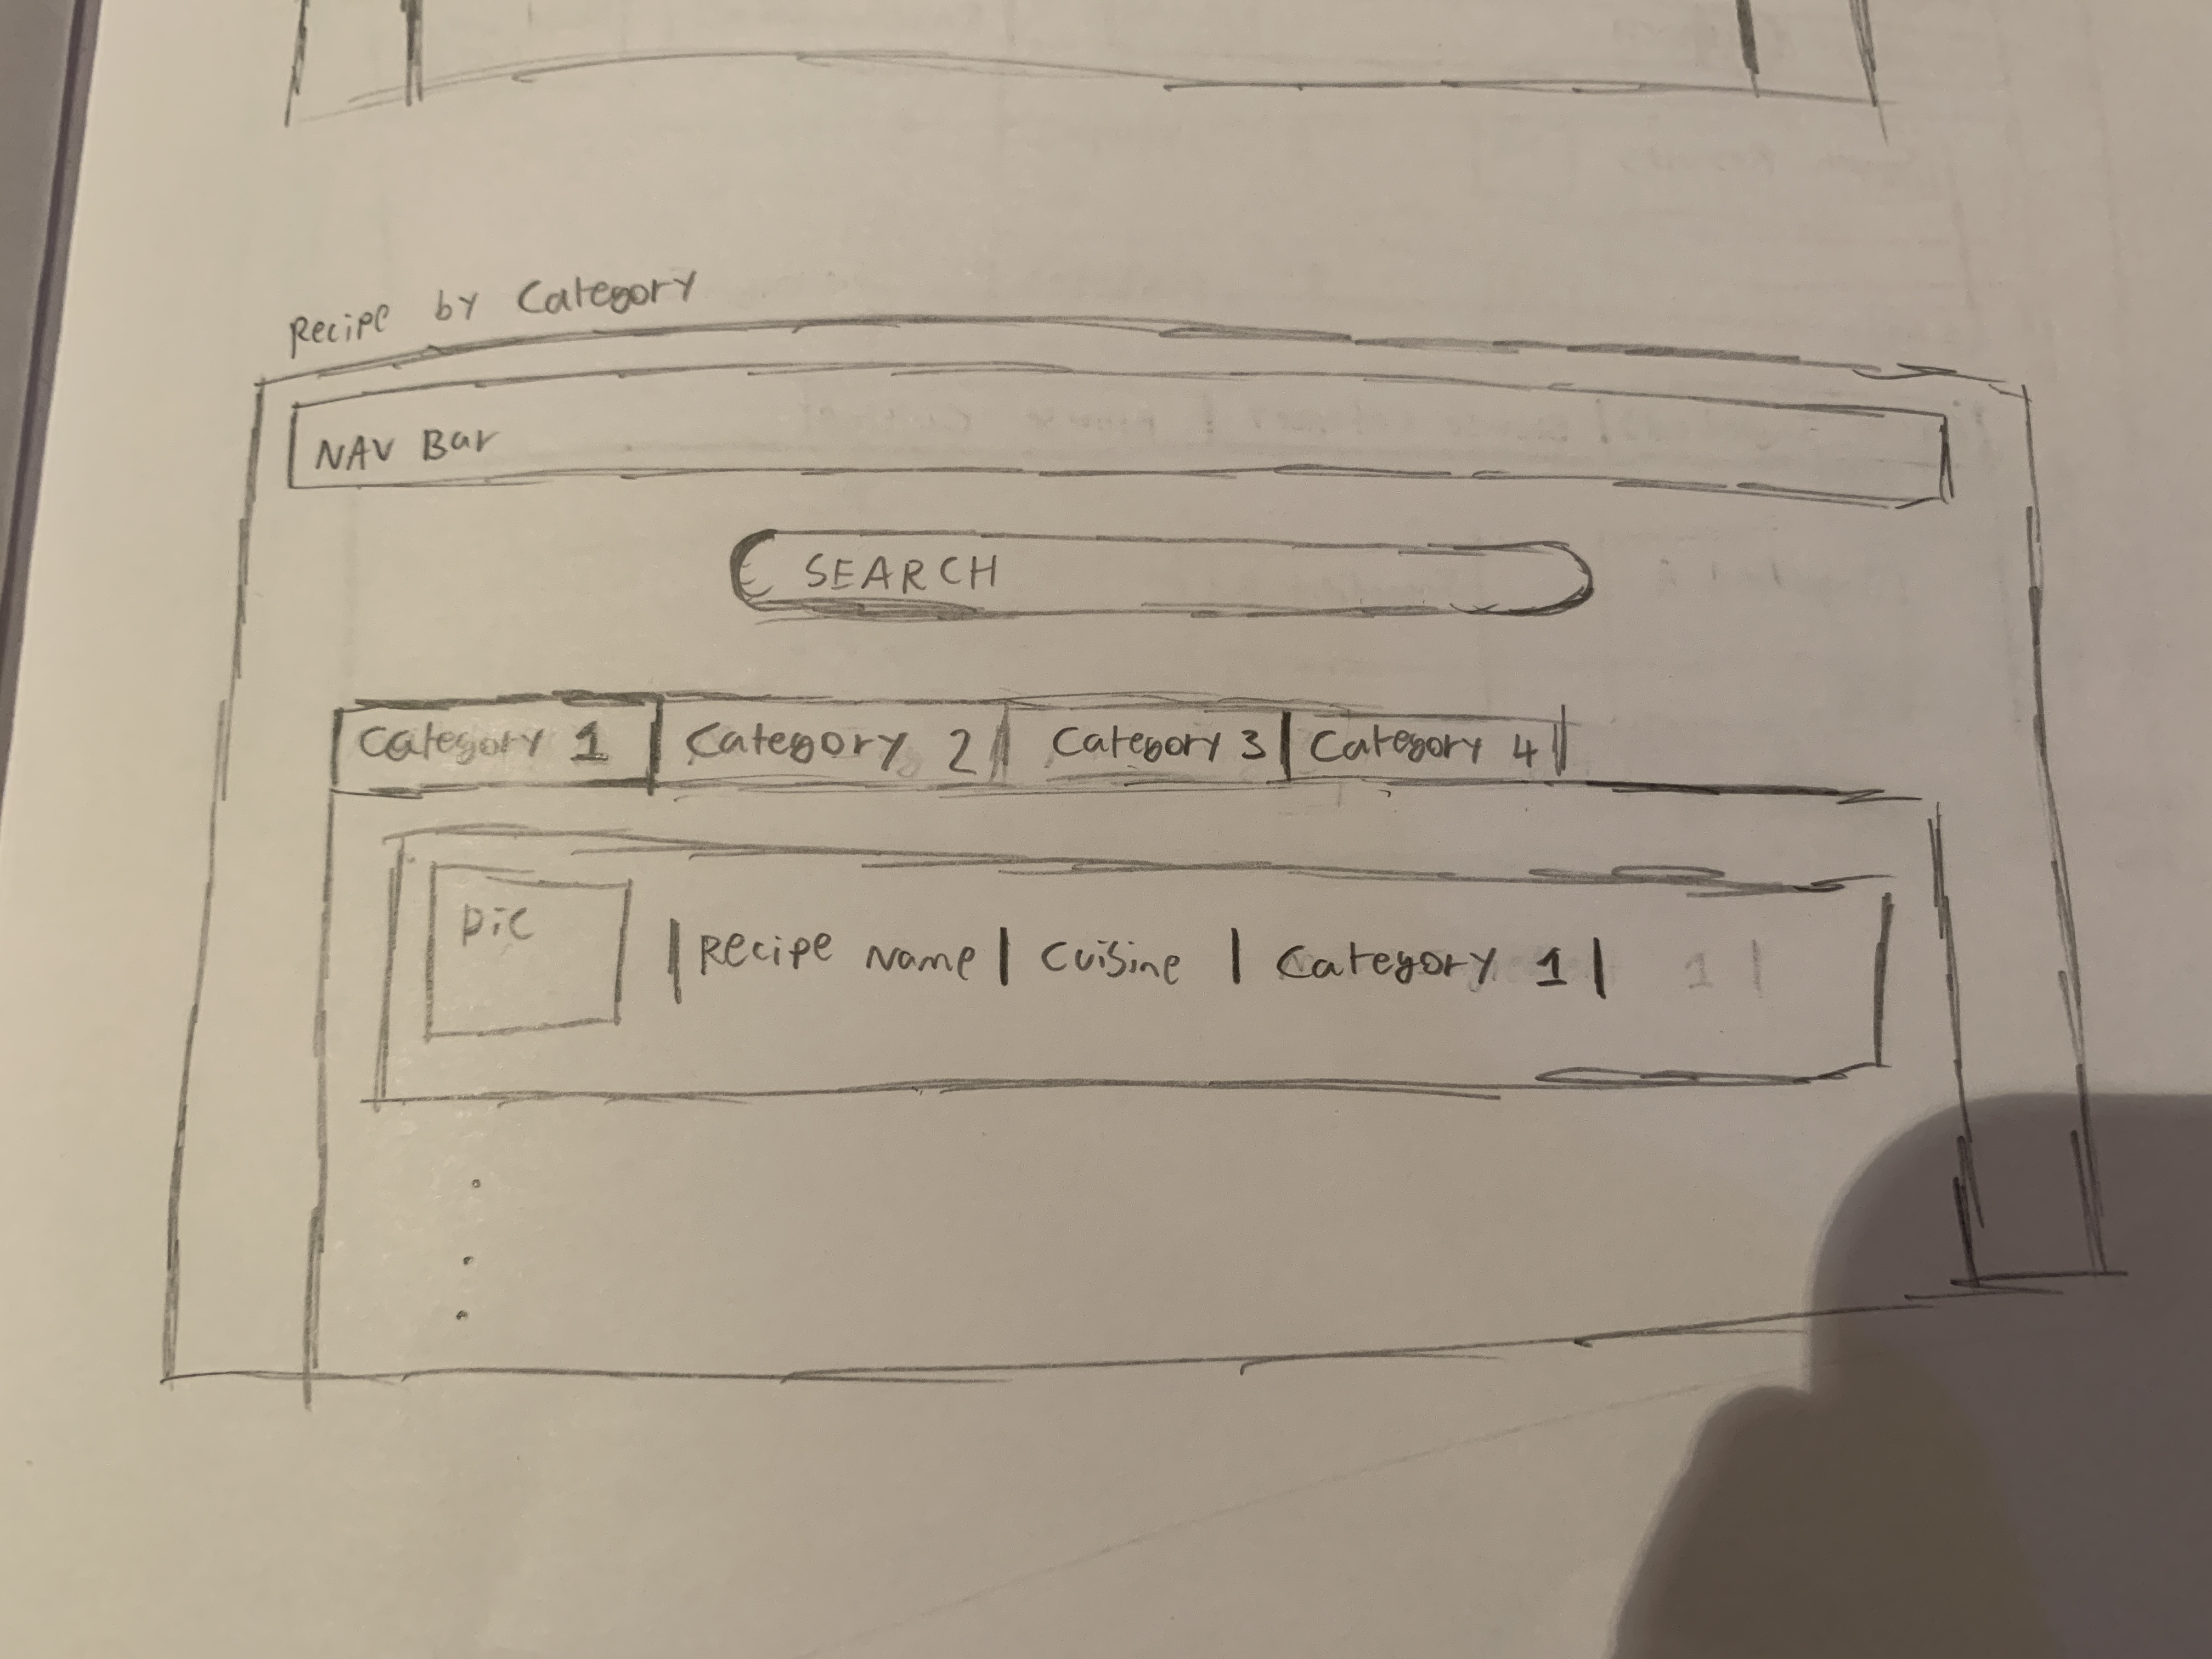 Recipe by Category
NAV Bar
SEARCH
Category 1 Category 2 Category 3 Category 4
Pic
Recipe Name | Cuisine | Category 1 | 1 |